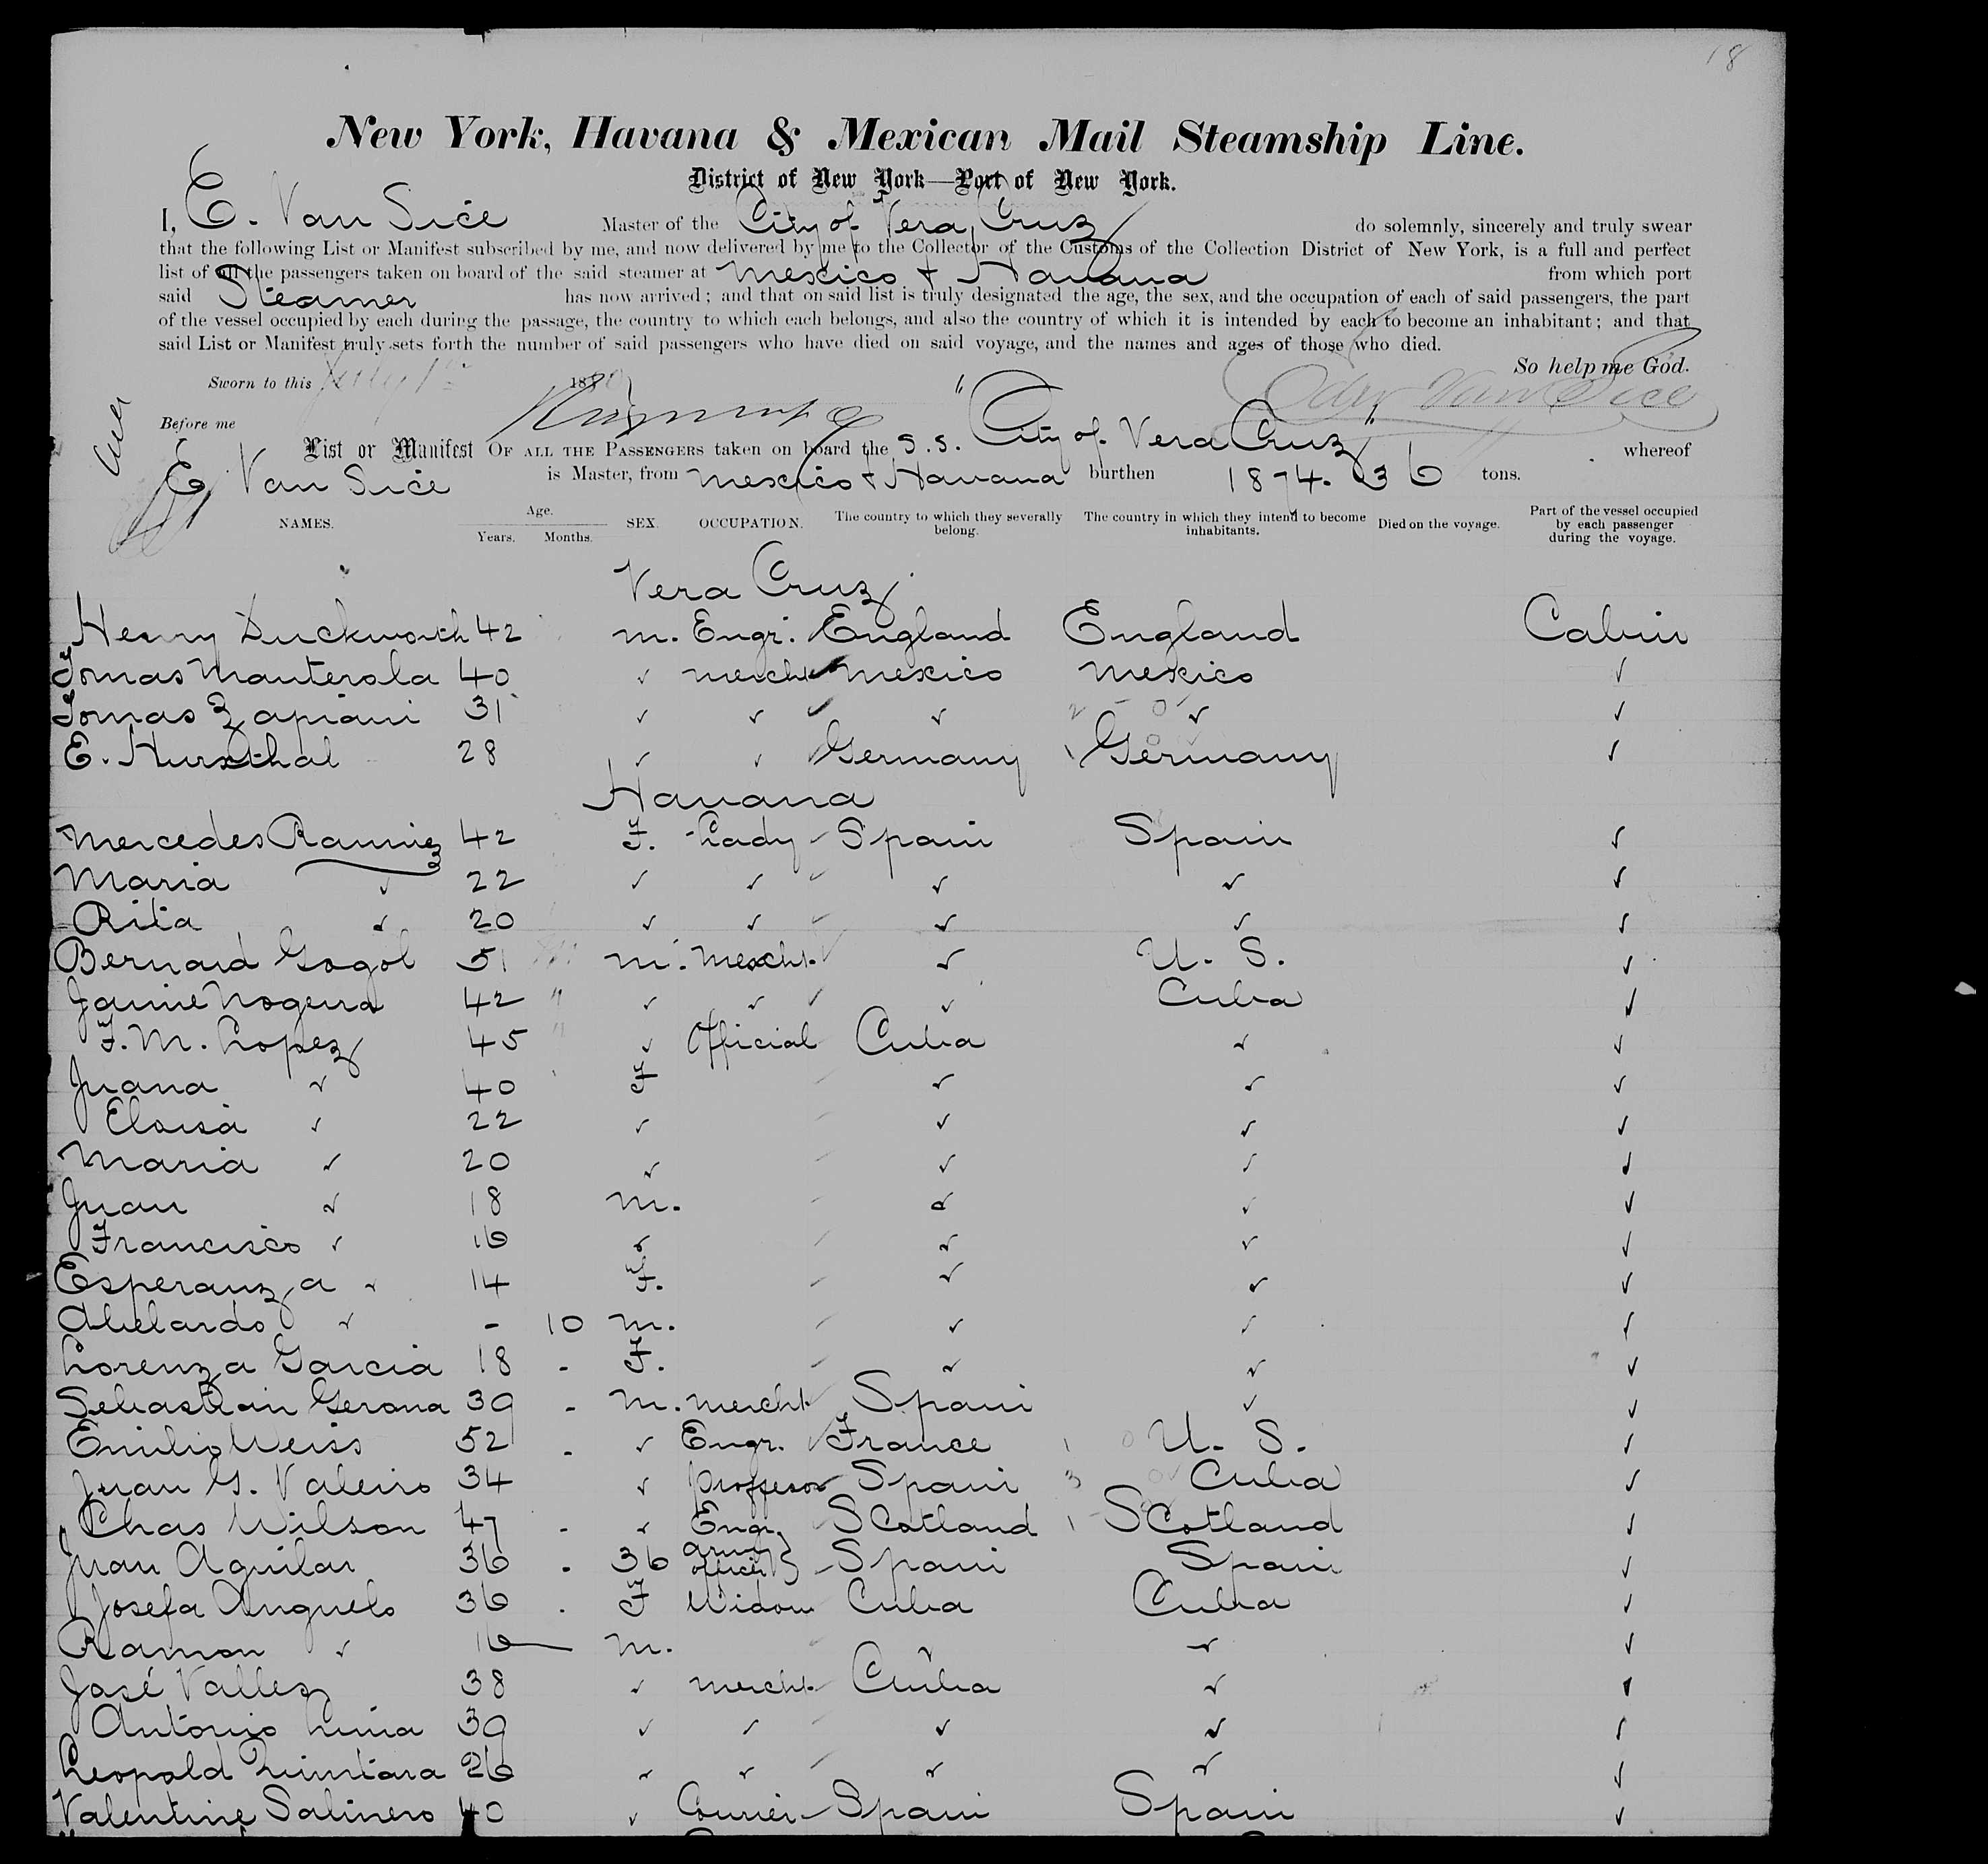 18
New York, Havana & Mexican Mail Steamship Line.
District of New York—Port of New York.
I, E. Van Sice Master of the City of Vera Cruz do solemnly, sincerely and truly swear
that the following List or Manifest subscribed by me, and now delivered by me to the Collector of the Customs of the Collection District of New York, is a full and perfect
list of all the passengers taken on board of the said steamer at Mexico & Havana from which port
said Steamer has now arrived; and that on said list is truly designated the age, the sex, and the occupation of each of said passengers, the part
of the vessel occupied by each during the passage, the country to which each belongs, and also the country of which it is intended by each to become an inhabitant; and that
said List or Manifest truly sets forth the number of said passengers who have died on said voyage, and the names and ages of those who died.
So help me God.
Sworn to this July 1st 1880
Edw Van Sice
Before me
List or Manifest OF ALL THE PASSENGERS taken on board the S.S. "City of Vera Cruz" whereof
E Van Sice is Master, from Mexico & Havana burthen 1874.36 tons.
NAMES. Age. Years. Months. SEX. OCCUPATION. The country to which they severally belong. The country in which they intend to become inhabitants. Died on the voyage. Part of the vessel occupied by each passenger during the voyage.
Vera Cruz
Henry Duckworth 42 m. Engr. England England Cabin
Tomas Manterola 40 ✓ mercht Mexico Mexico ✓
Tomas Zapiani 31 ✓ ✓ ✓ ✓ ✓
E. Hursthal 28 ✓ ✓ Germany Germany ✓
Havana
Mercedes Ramirez 42 F. Lady Spain Spain ✓
Maria ✓ 22 ✓ ✓ ✓ ✓ ✓
Rita ✓ 20 ✓ ✓ ✓ ✓ ✓
Bernard Gogol 51 m. Mercht. ✓ U. S. ✓
Jaime Nogeira 42 " ✓ ✓ ✓ Cuba ✓
F. M. Lopez 45 " ✓ Official Cuba ✓ ✓
Juana ✓ 40 F ✓ ✓ ✓
Eloisa ✓ 22 ✓ ✓ ✓ ✓
Maria ✓ 20 ✓ ✓ ✓ ✓
Juan ✓ 18 m. ✓ ✓ ✓
Francisco ✓ 16 ✓ ✓ ✓ ✓
Esperanza ✓ 14 F. ✓ ✓ ✓
Abelardo ✓ - 10 m. ✓ ✓ ✓
Lorenza Garcia 18 - F. ✓ ✓ ✓
Sebastian Gerona 39 - m. mercht Spain ✓ ✓
Emilio Weiss 52 - ✓ Engr. France U. S. ✓
Juan G. Valeiro 34 ✓ Proffesor Spain Cuba ✓
Chas Wilson 47 - ✓ Engr. Scotland Scotland ✓
Juan Aguilar 36 - 36 Army officer Spain Spain ✓
Josefa Anguelo 36 - F Widow Cuba Cuba ✓
Ramon ✓ 16 m. ✓ ✓ ✓
José Vallez 38 ✓ mercht Cuba ✓ ✓
Antonio Luna 39 ✓ ✓ ✓ ✓ ✓
Leopold Quintana 26 ✓ ✓ ✓ ✓ ✓
Valentine Salinero 40 ✓ Courier Spain Spain ✓